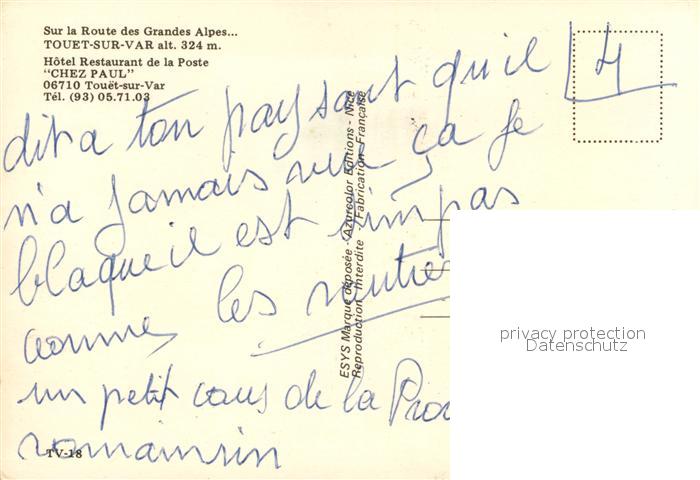 Sur la Route des Grandes Alpes...
TOUET-SUR-VAR alt. 324 m.
Hôtel Restaurant de la Poste
"CHEZ PAUL"
06710 Touët-sur-Var
Tél. (93) 05.71.03
4
dit a ton paysant qu'il
n'a jamais ça je
il est simpas
comme les
un petit cous de la
ESYS Marque déposée - Azurcolor Editions - Nice
Reproduction Interdite - Fabrication Française
TV-18
privacy protection
Datenschutz